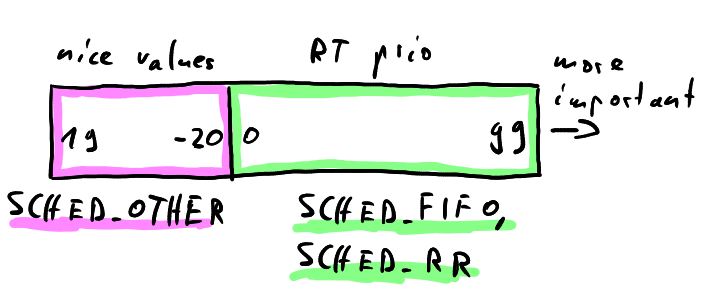 nice values
RT prio
more
important
19 -20 0 99
SCHED_OTHER
SCHED_FIFO,
SCHED_RR